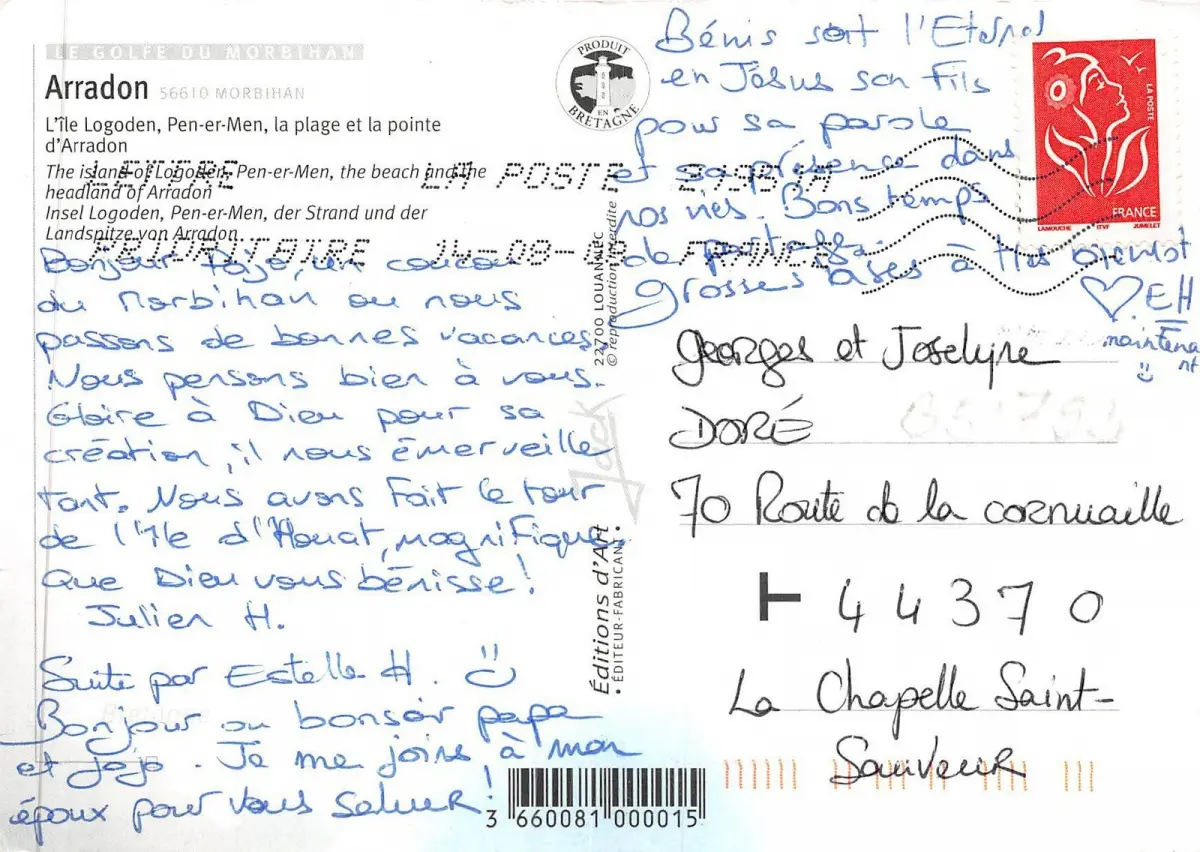 LE GOLFE DU MORBIHAN
Arradon 56610 MORBIHAN
L'île Logoden, Pen-er-Men, la plage et la pointe
d'Arradon
The island of Logoden, Pen-er-Men, the beach and the
headland of Arradon
Insel Logoden, Pen-er-Men, der Strand und der
Landspitze von Arradon
LETTRE LA POSTE
PRIORITAIRE FRANCE
Bonjour Jojo, un coucou
du Morbihan ou nous
passons de bonnes vacances.
Nous pensons bien à vous.
Gloire à Dieu pour sa
création, il nous émerveille
tant. Nous avons fait le tour
de l'île d'Houat, magnifique.
Que Dieu vous bénisse!
Julien H.
Suite par Estelle H.
Bonjour ou bonsoir papa
et jojo. Je me joins à mon
époux pour vous saluer!
PRODUIT
EN
BRETAGNE
Bénis soit l'Eternel
en Jésus son Fils
pour sa parole
et sa présence dans
nos vies. Bons temps
de partage.
grosses bises à très bientôt
EH
maintena
nt
LA POSTE
FRANCE
LAMOUCHE ITVF JUMELET
22700 LOUANNEC
© reproduction interdite
Jack
Éditions d'Art
• ÉDITEUR-FABRICANT •
Georges et Joselyne
DORÉ
70 Route de la cornuaille
44370
La Chapelle Saint-
Sauveur
Bretagne
3 660081 000015